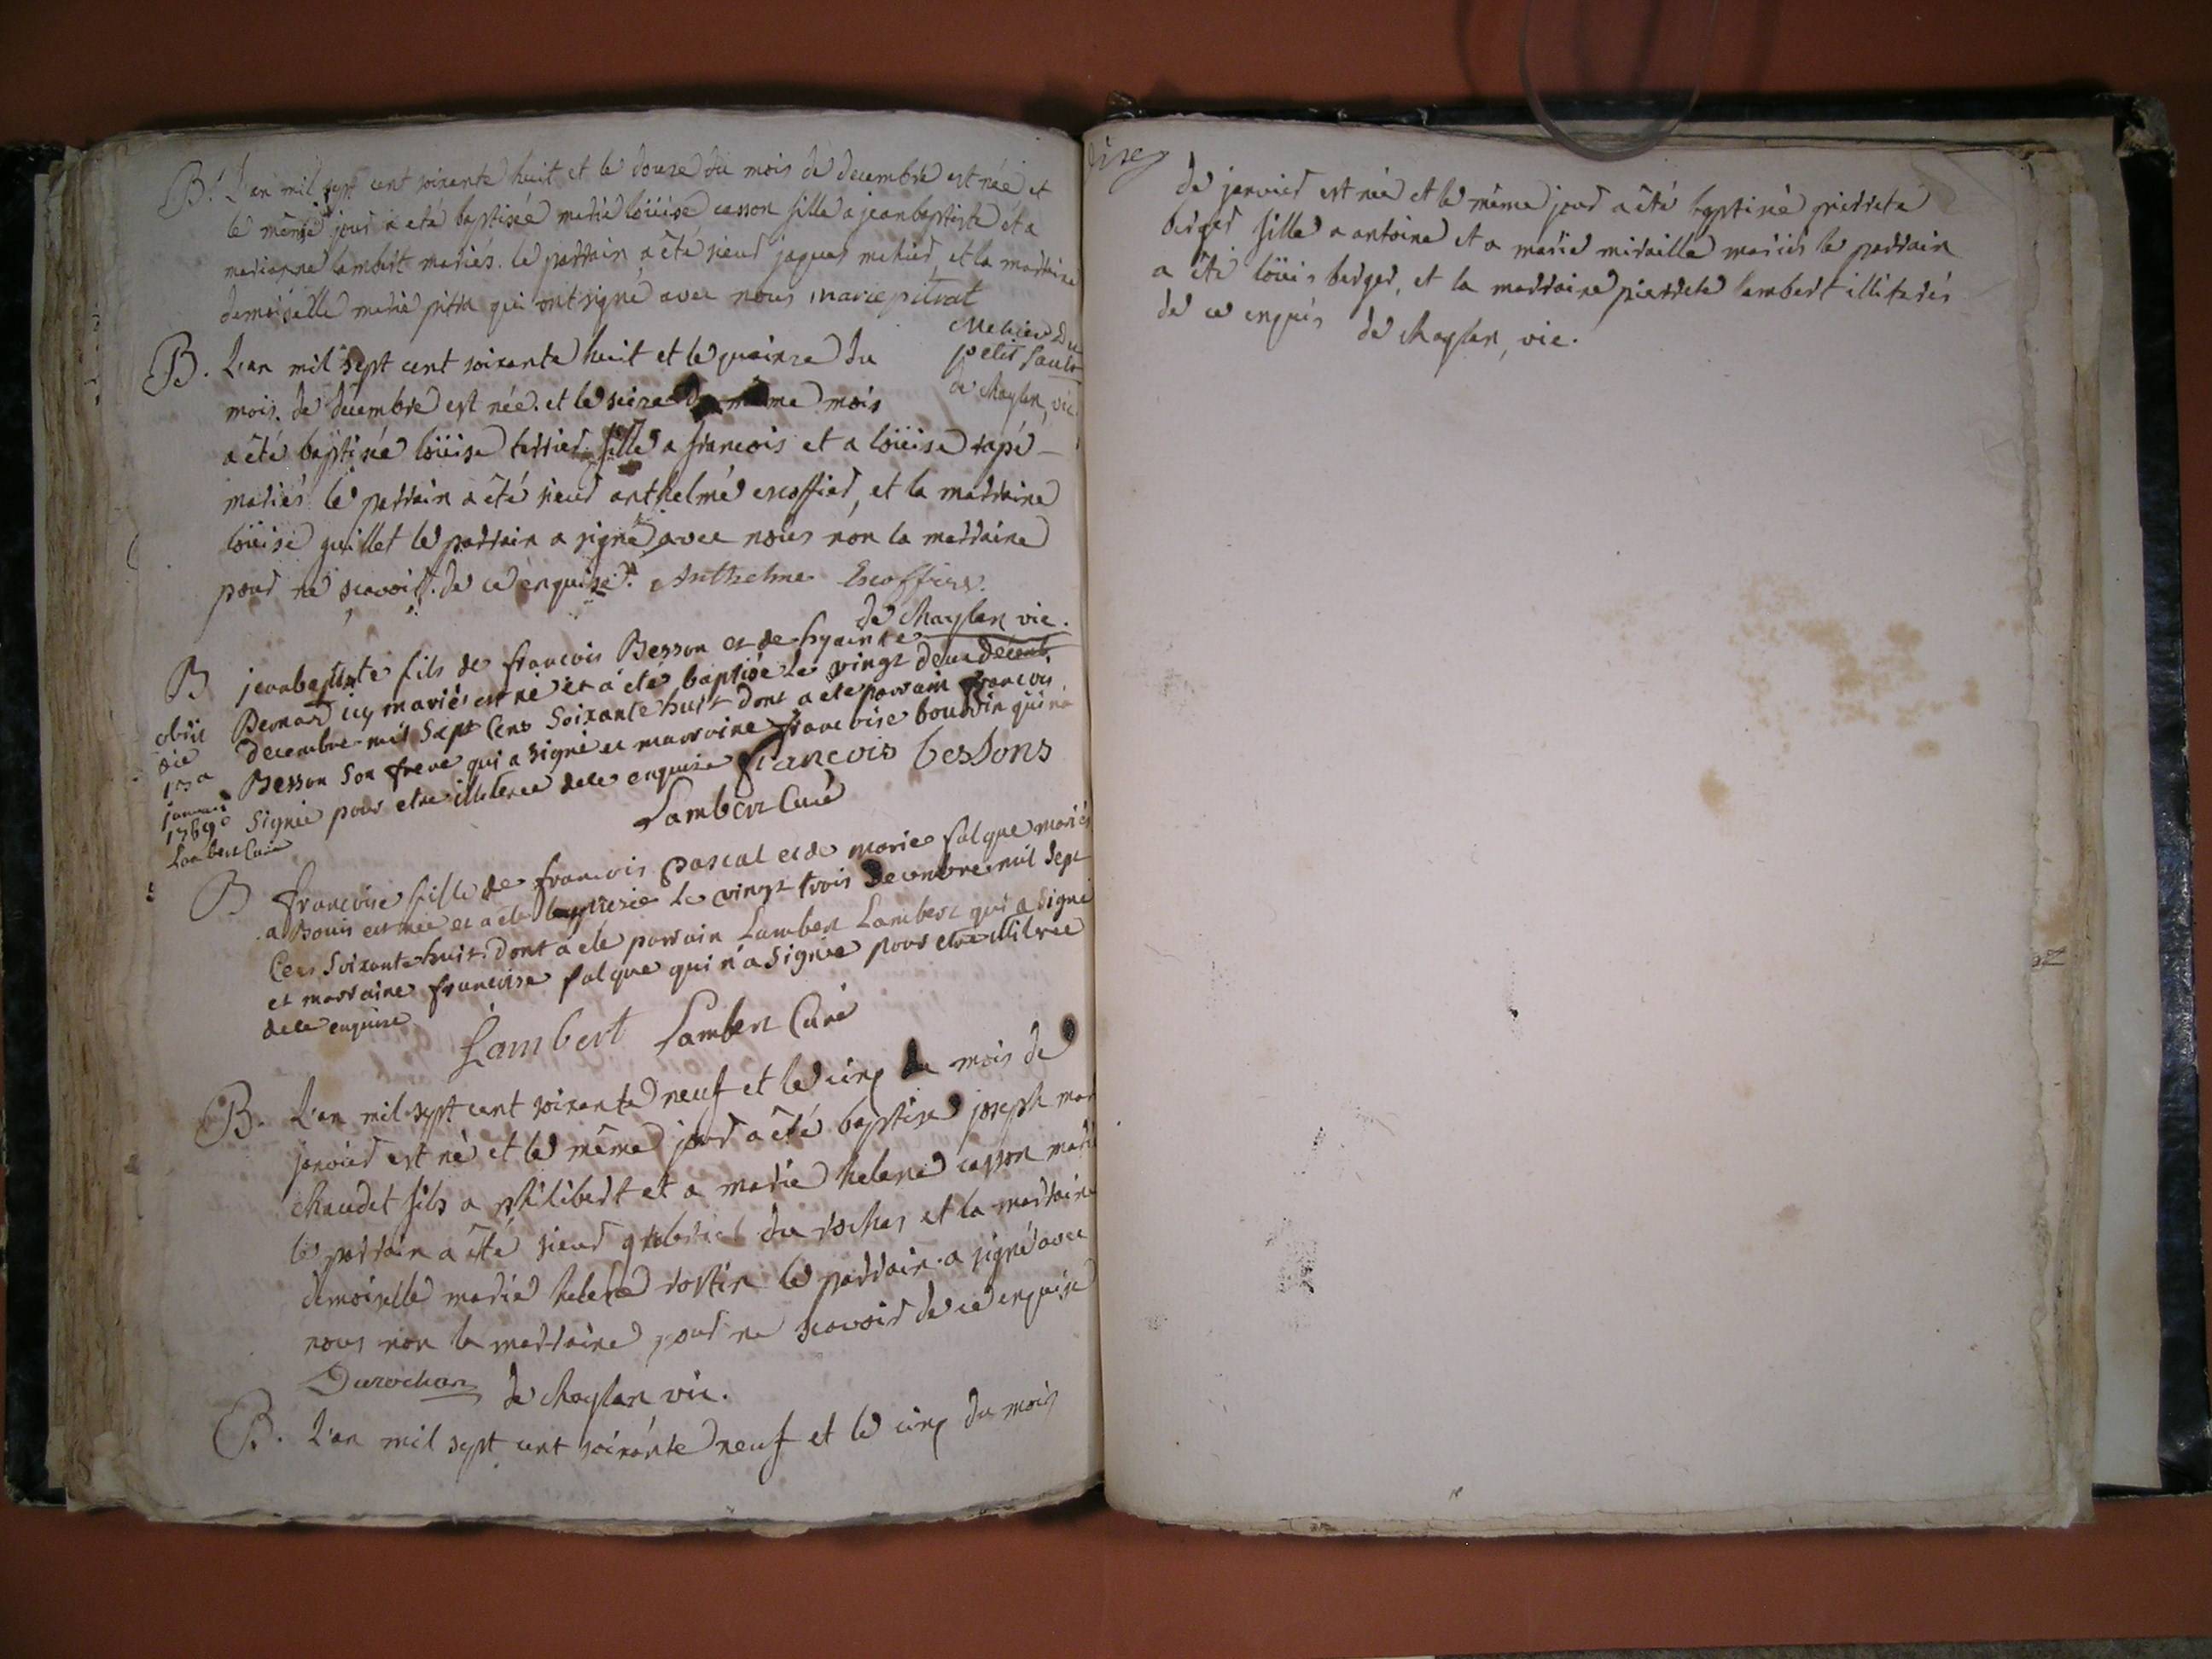 B. L'an mil sept cent soixante huit et le douze du mois de decembre est née et
le même jour a eté baptisée marie loüise casson fille a jean baptiste et a
marianne lambert mariés. le parrain a été sieur jaques mehier, et la marraine
demoiselle marie pitrat qui ont signé avec nous marie pitrat
Mehier du
petit saul
de chaylan, vic.
B. L'an mil sept cent soixante huit et le quainze du
mois de decembre est née. et le seize du même mois
a été baptisée loüise terrier fille a francois et a loüise rapé
mariés le parrain a été sieur anthelme escoffier, et la marraine
loüise guillet le parrain a signé avec nous non la marraine
pour ne scavoir. de ce enquise. Anthelme Escoffier.
de chaylan vic.
B jeanbaptiste fils de francois Besson et de hyainte
Bernard icy mariés est né et a été baptisé le vingt deux décemb
decembre mil sept cens soixante huit dont a ete parrain francois
Besson son frere qui a signé et marraine francoise bouvvin qui na
signée pour etre illiterée dele enquise francois bessons
Lambert Curé
obiit
die
17a
januarii
1769
Lambert Curé
B francoise fille de francois pascal et de marie falque mariés
a Bouis est née et a ete baptisée le vingt trois decembre mil sept
cens soixante huit. dont a ete parrain Lambert Lambert qui a signé
et marraine francoise falque qui n'a signée pour etre illitree
dele enquise
Lambert Lambert Curé
B. L'an mil sept cent soixante neuf et le cinq du mois de
janvier est né et le même jour a été baptisé joseph mar
chaudet fils a philibert et a marie helene casson marié
le parrain a été sieur gabriel du rochas et la marraine
demoiselle marie helene rostin le parrain a signé avec
nous non la marraine pour ne scavoir de ce enquise
Durochas de chaylan vic.
B. L'an mil sept cent soixante neuf et le cinq du mois
de janvier est née et le même jour a été baptisée pierrete
berger fille a antoine et a marie miraille mariés le parrain
a été loüis berger, et la marraine pierrete lambert illiterés
de ce enquis de chaylan, vic.